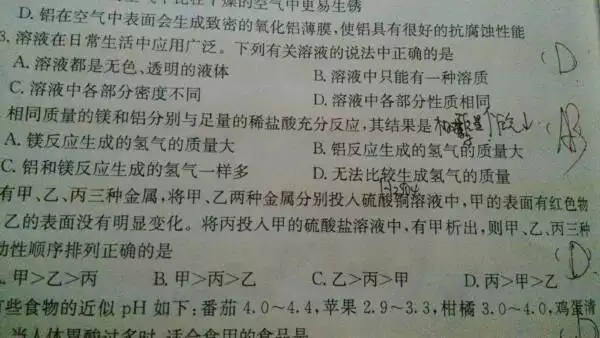 空气中更易生锈
D. 铝在空气中表面会生成致密的氧化铝薄膜,使铝具有很好的抗腐蚀性能
3. 溶液在日常生活中应用广泛。下列有关溶液的说法中正确的是 (D
A. 溶液都是无色、透明的液体 B. 溶液中只能有一种溶质
C. 溶液中各部分密度不同 D. 溶液中各部分性质相同
相同质量的镁和铝分别与足量的稀盐酸充分反应,其结果是
A. 镁反应生成的氢气的质量大 B. 铝反应生成的氢气的质量大
C. 铝和镁反应生成的氢气一样多 D. 无法比较生成氢气的质量
有甲、乙、丙三种金属,将甲、乙两种金属分别投入硫酸铜溶液中,甲的表面有红色物
乙的表面没有明显变化。将丙投入甲的硫酸盐溶液中,有甲析出,则甲、乙、丙三种
动性顺序排列正确的是 (D
A. 甲>乙>丙 B. 甲>丙>乙 C. 乙>丙>甲 D. 丙>甲>乙
有些食物的近似 pH 如下:番茄 4.0~4.4,苹果 2.9~3.3,柑橘 3.0~4.0,鸡蛋清
当人体胃酸过多时,适合食用的食品是